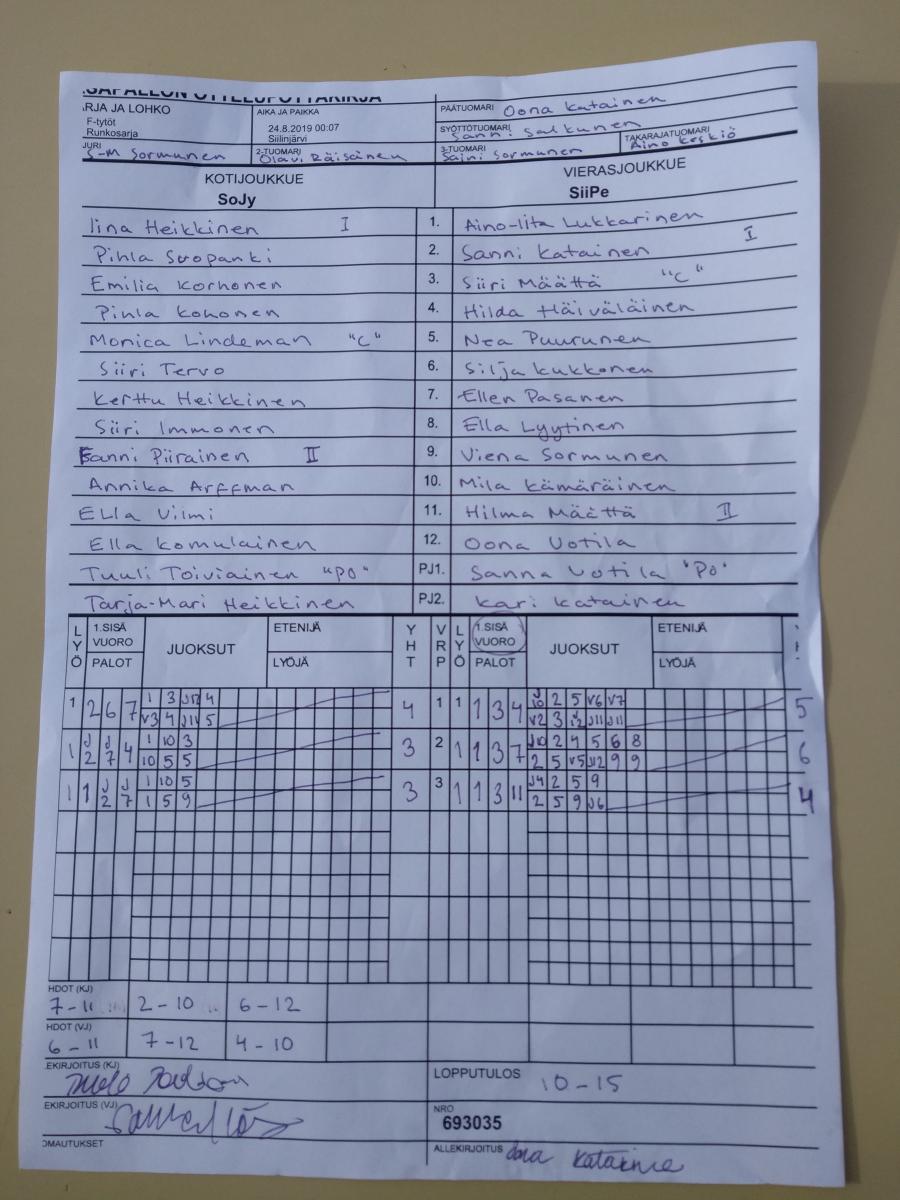 RJA JA LOHKO
F-tytöt
Runkosarja
AIKA JA PAIKKA
24.8.2019 00:07
Siilinjärvi
PÄÄTUOMARI Oona Katainen
SYÖTTÖTUOMARI Sanni
JURI S-M Sormunen
2-TUOMARI Olavi Räisänen
3-TUOMARI Saini Sormunen
TAKARAJATUOMARI Aino Keskiö
KOTIJOUKKUE VIERASJOUKKUE
SoJy SiiPe
Iina Heikkinen I 1. Aino-Iita Lukkarinen
Pihla Suopanki 2. Sanni Katainen I
Emilia Korhonen 3. Siiri Määttä "C"
Pihla Kohonen 4. Hilda Häiväläinen
Monica Lindeman "C" 5. Nea Puurunen
Siiri Tervo 6. Silja Kukkonen
Kerttu Heikkinen 7. Ellen Pasanen
Siiri Immonen 8. Ella Lyytinen
Sanni Piirainen II 9. Viena Sormunen
Annika Arffman 10. Mila Kämäräinen
Ella Vilmi 11. Hilma Määttä II
Ella Komulainen 12. Oona Votila
Tuuli Toiviainen "PO" PJ1. Sanna Votila "PO"
Tarja-Mari Heikkinen PJ2. Kari Katainen
LYÖ 1.SISÄ VUORO PALOT JUOKSUT ETENIJÄ LYÖJÄ YHT VRP LYÖ 1.SISÄ VUORO PALOT JUOKSUT ETENIJÄ LYÖJÄ
1 2 6 7 1 3 J12 4 4 1 1 1 3 4 J10 2 5 V6 V7 5
V3 4 J11 5 V2 3 J11 J11
1 J2 J7 4 1 10 3 3 2 1 1 3 7 J10 2 4 5 6 8 6
10 5 5 2 5 V5 J12 9 9
1 1 J2 J7 1 10 5 3 3 1 1 3 11 J4 2 5 9 4
1 5 9 2 5 9 J6
HDOT (KJ)
7-11 2-10 6-12
HDOT (VJ)
6-11 7-12 4-10
EKIRJOITUS (KJ)
LOPPUTULOS 10-15
EKIRJOITUS (VJ)
NRO
693035
OMAUTUKSET
ALLEKIRJOITUS Oona Katainen